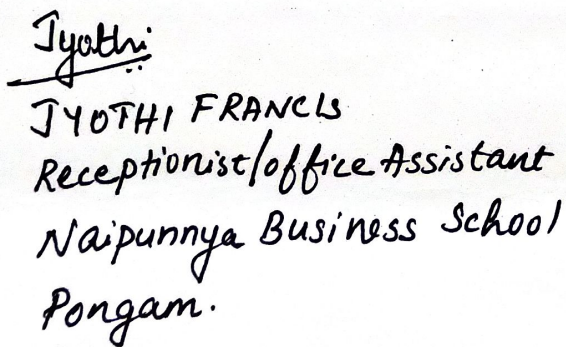 Jyothi
JYOTHI FRANCIS
Receptionist/office Assistant
Naipunnya Business School
Pongam.